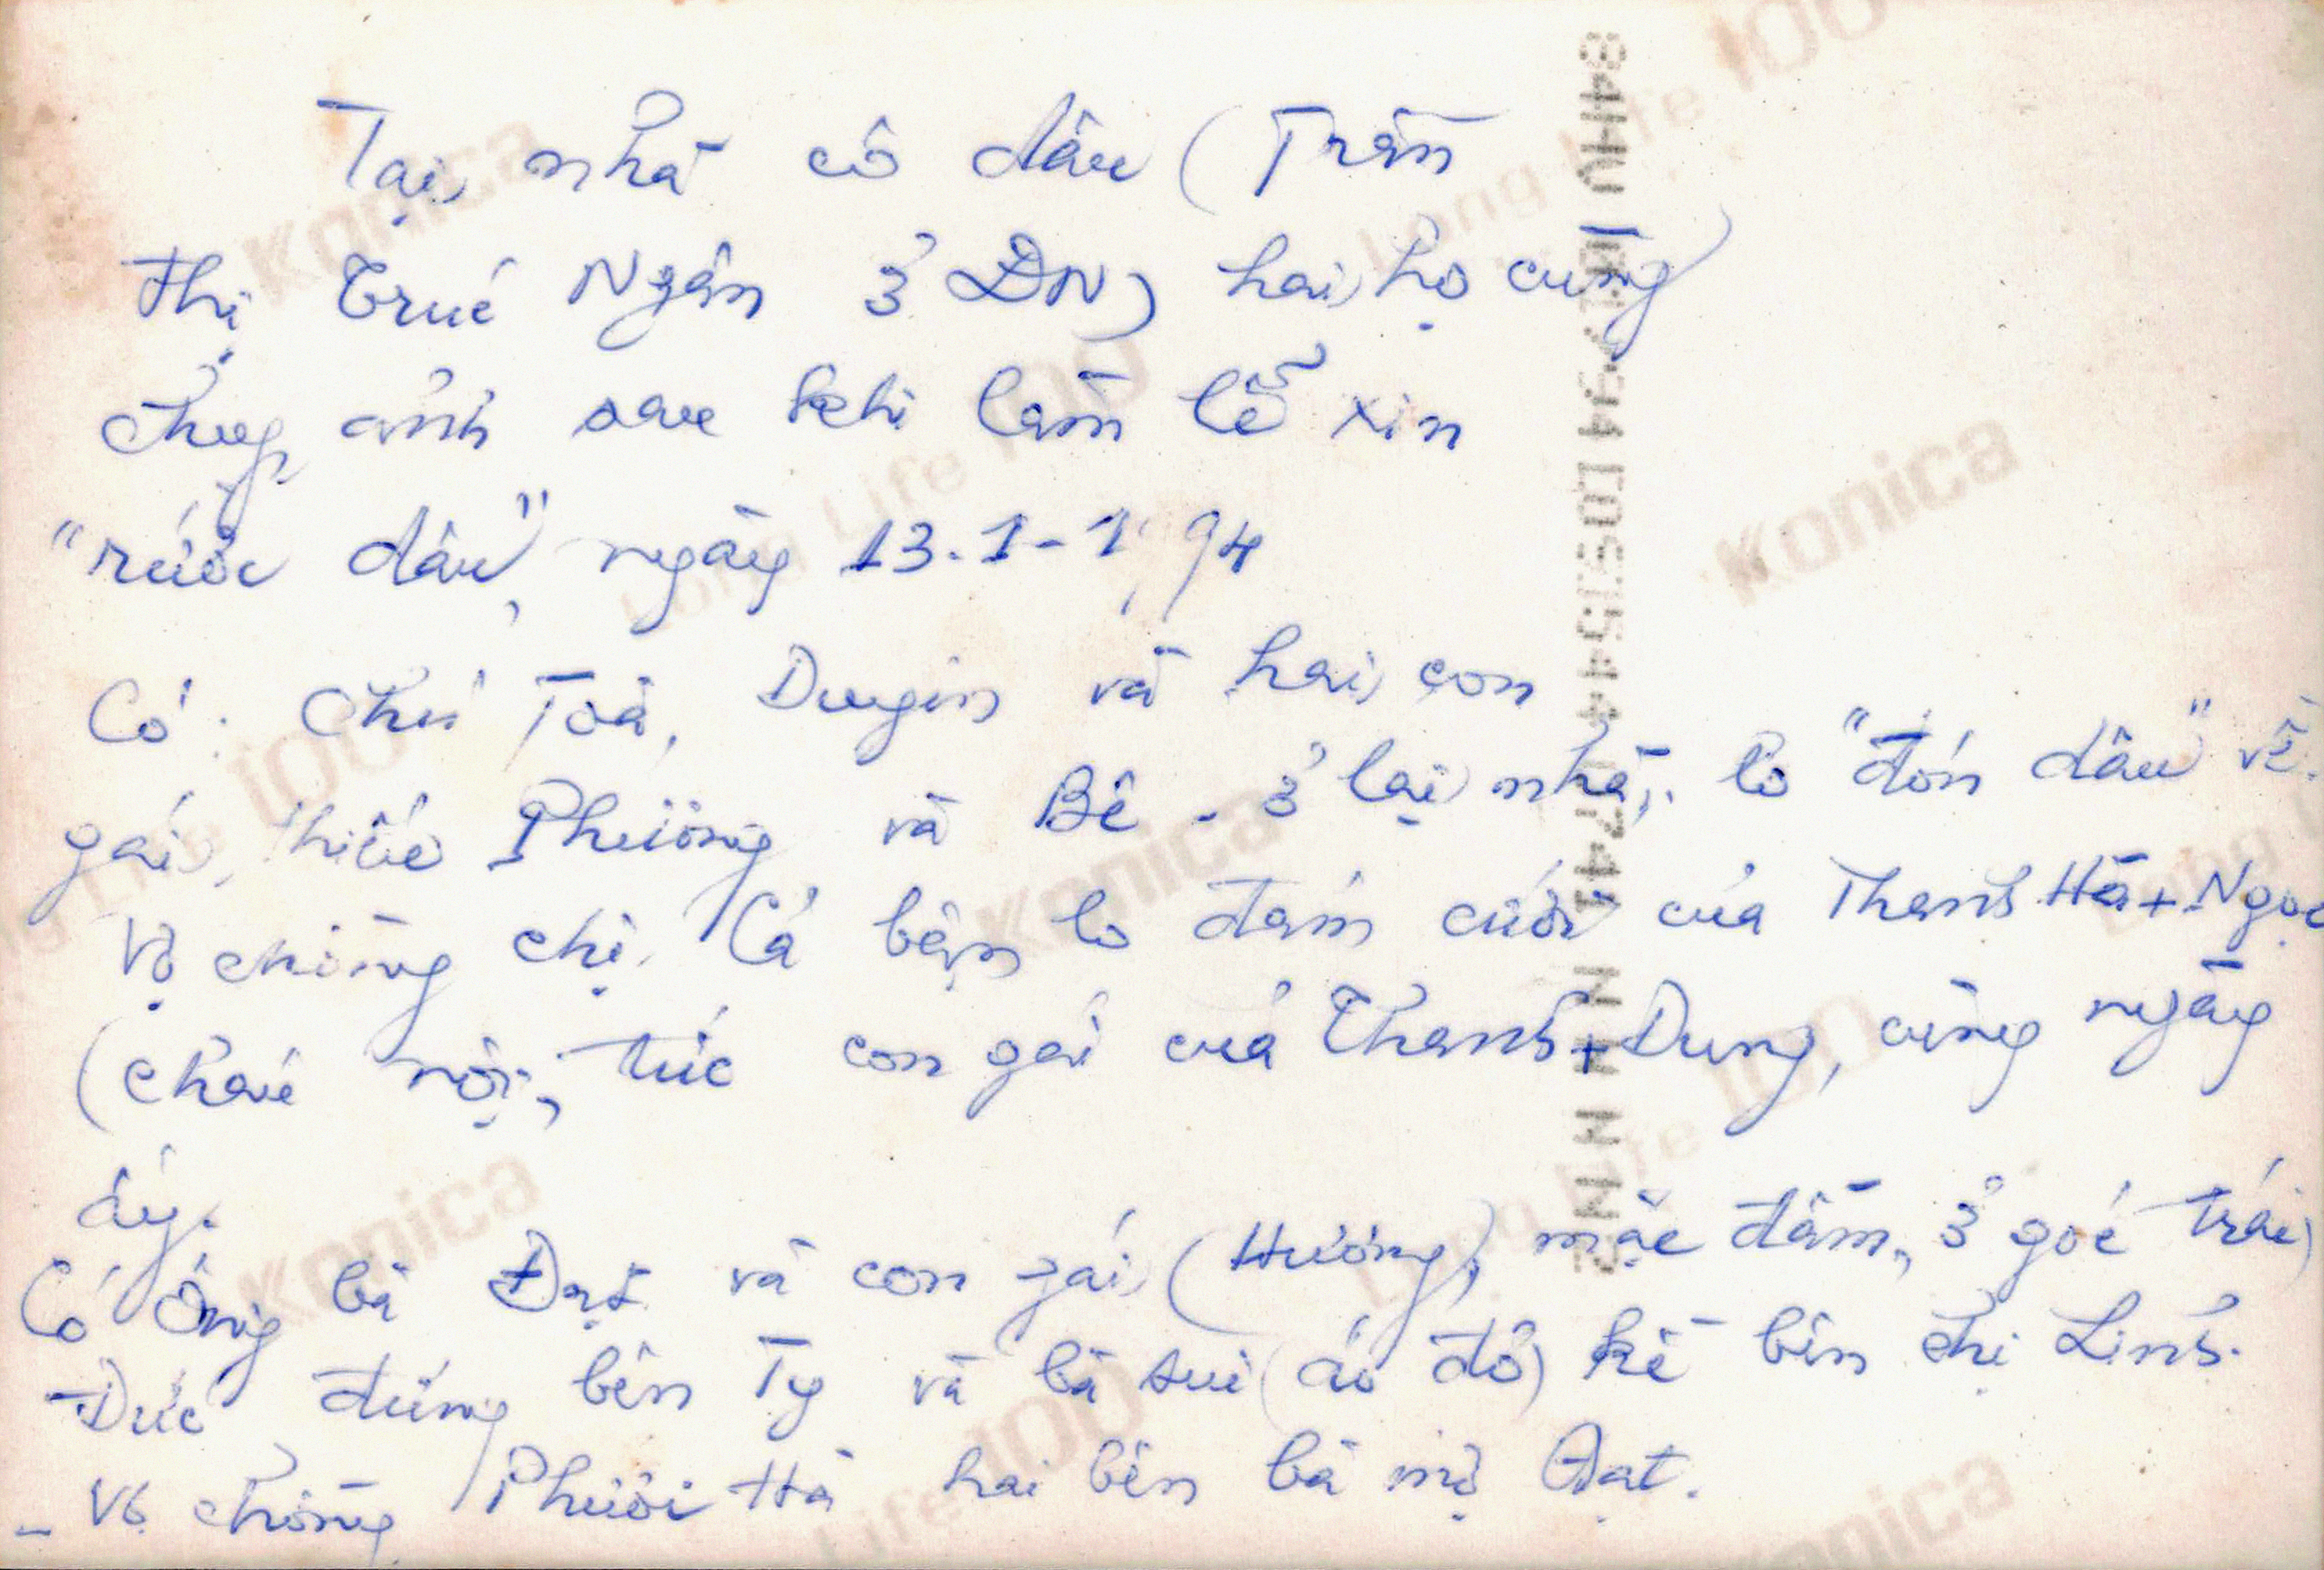 Tại nhà cô dâu (Trần
Thị Trúc Ngân ở ĐN) hai họ cùng
chụp ảnh sau khi làm lễ xin
"rước dâu", ngày 13.1-1994
Có: Chú Toà, Duyên và hai con
gái, thiếu Phương và Bê - ở lại nhà, lo "đón dâu" về.
Vợ chồng chị. Cả bận lo đám cưới của Thanh Hà + Ngọc
(cháu nội, tức con gái của Thanh + Dung, cùng ngày
ấy.
Có Ông bà Đạt và con gái (Hương), mặc đầm, ở góc trái
Đức đứng bên Ty và bà sui (áo đỏ) kế bên chị Linh.
- Vợ chồng Phước Hà hai bên bà mợ Đạt.
Konica
Long Life 100